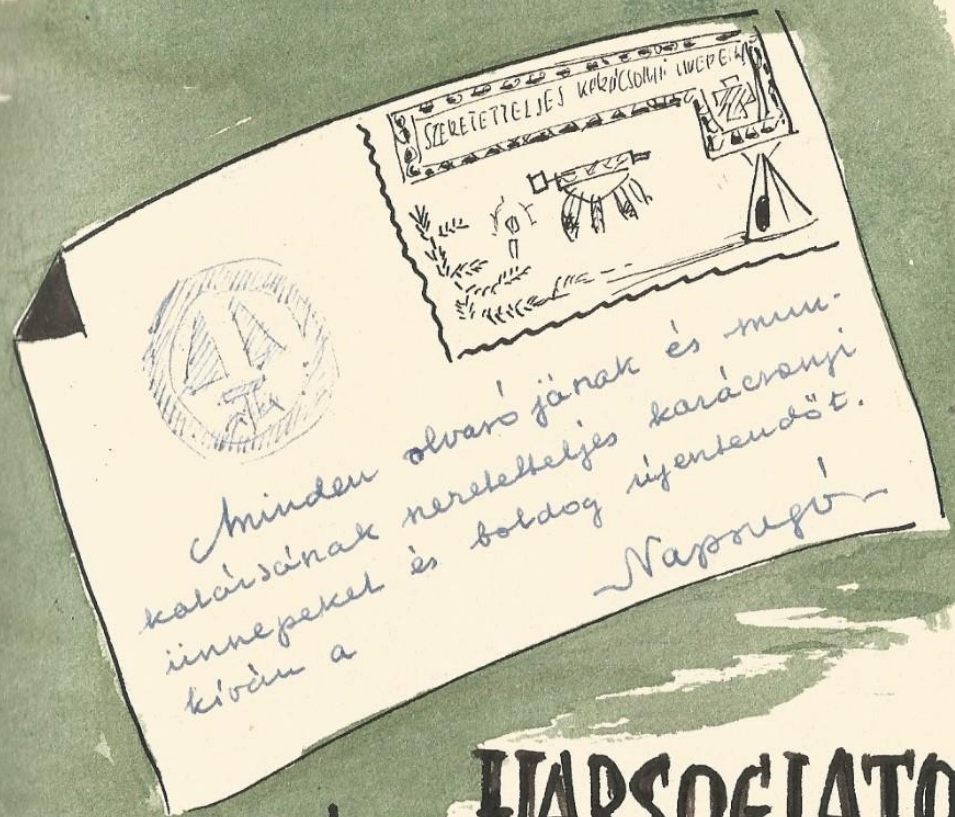 SZERETETTELJES KARÁCSONYI ÜNNEPEK
Minden olvasójának és mun-
katársának szeretetteljes karácsonyi
ünnepeket és boldog újesztendőt.
kíván a Napsugár